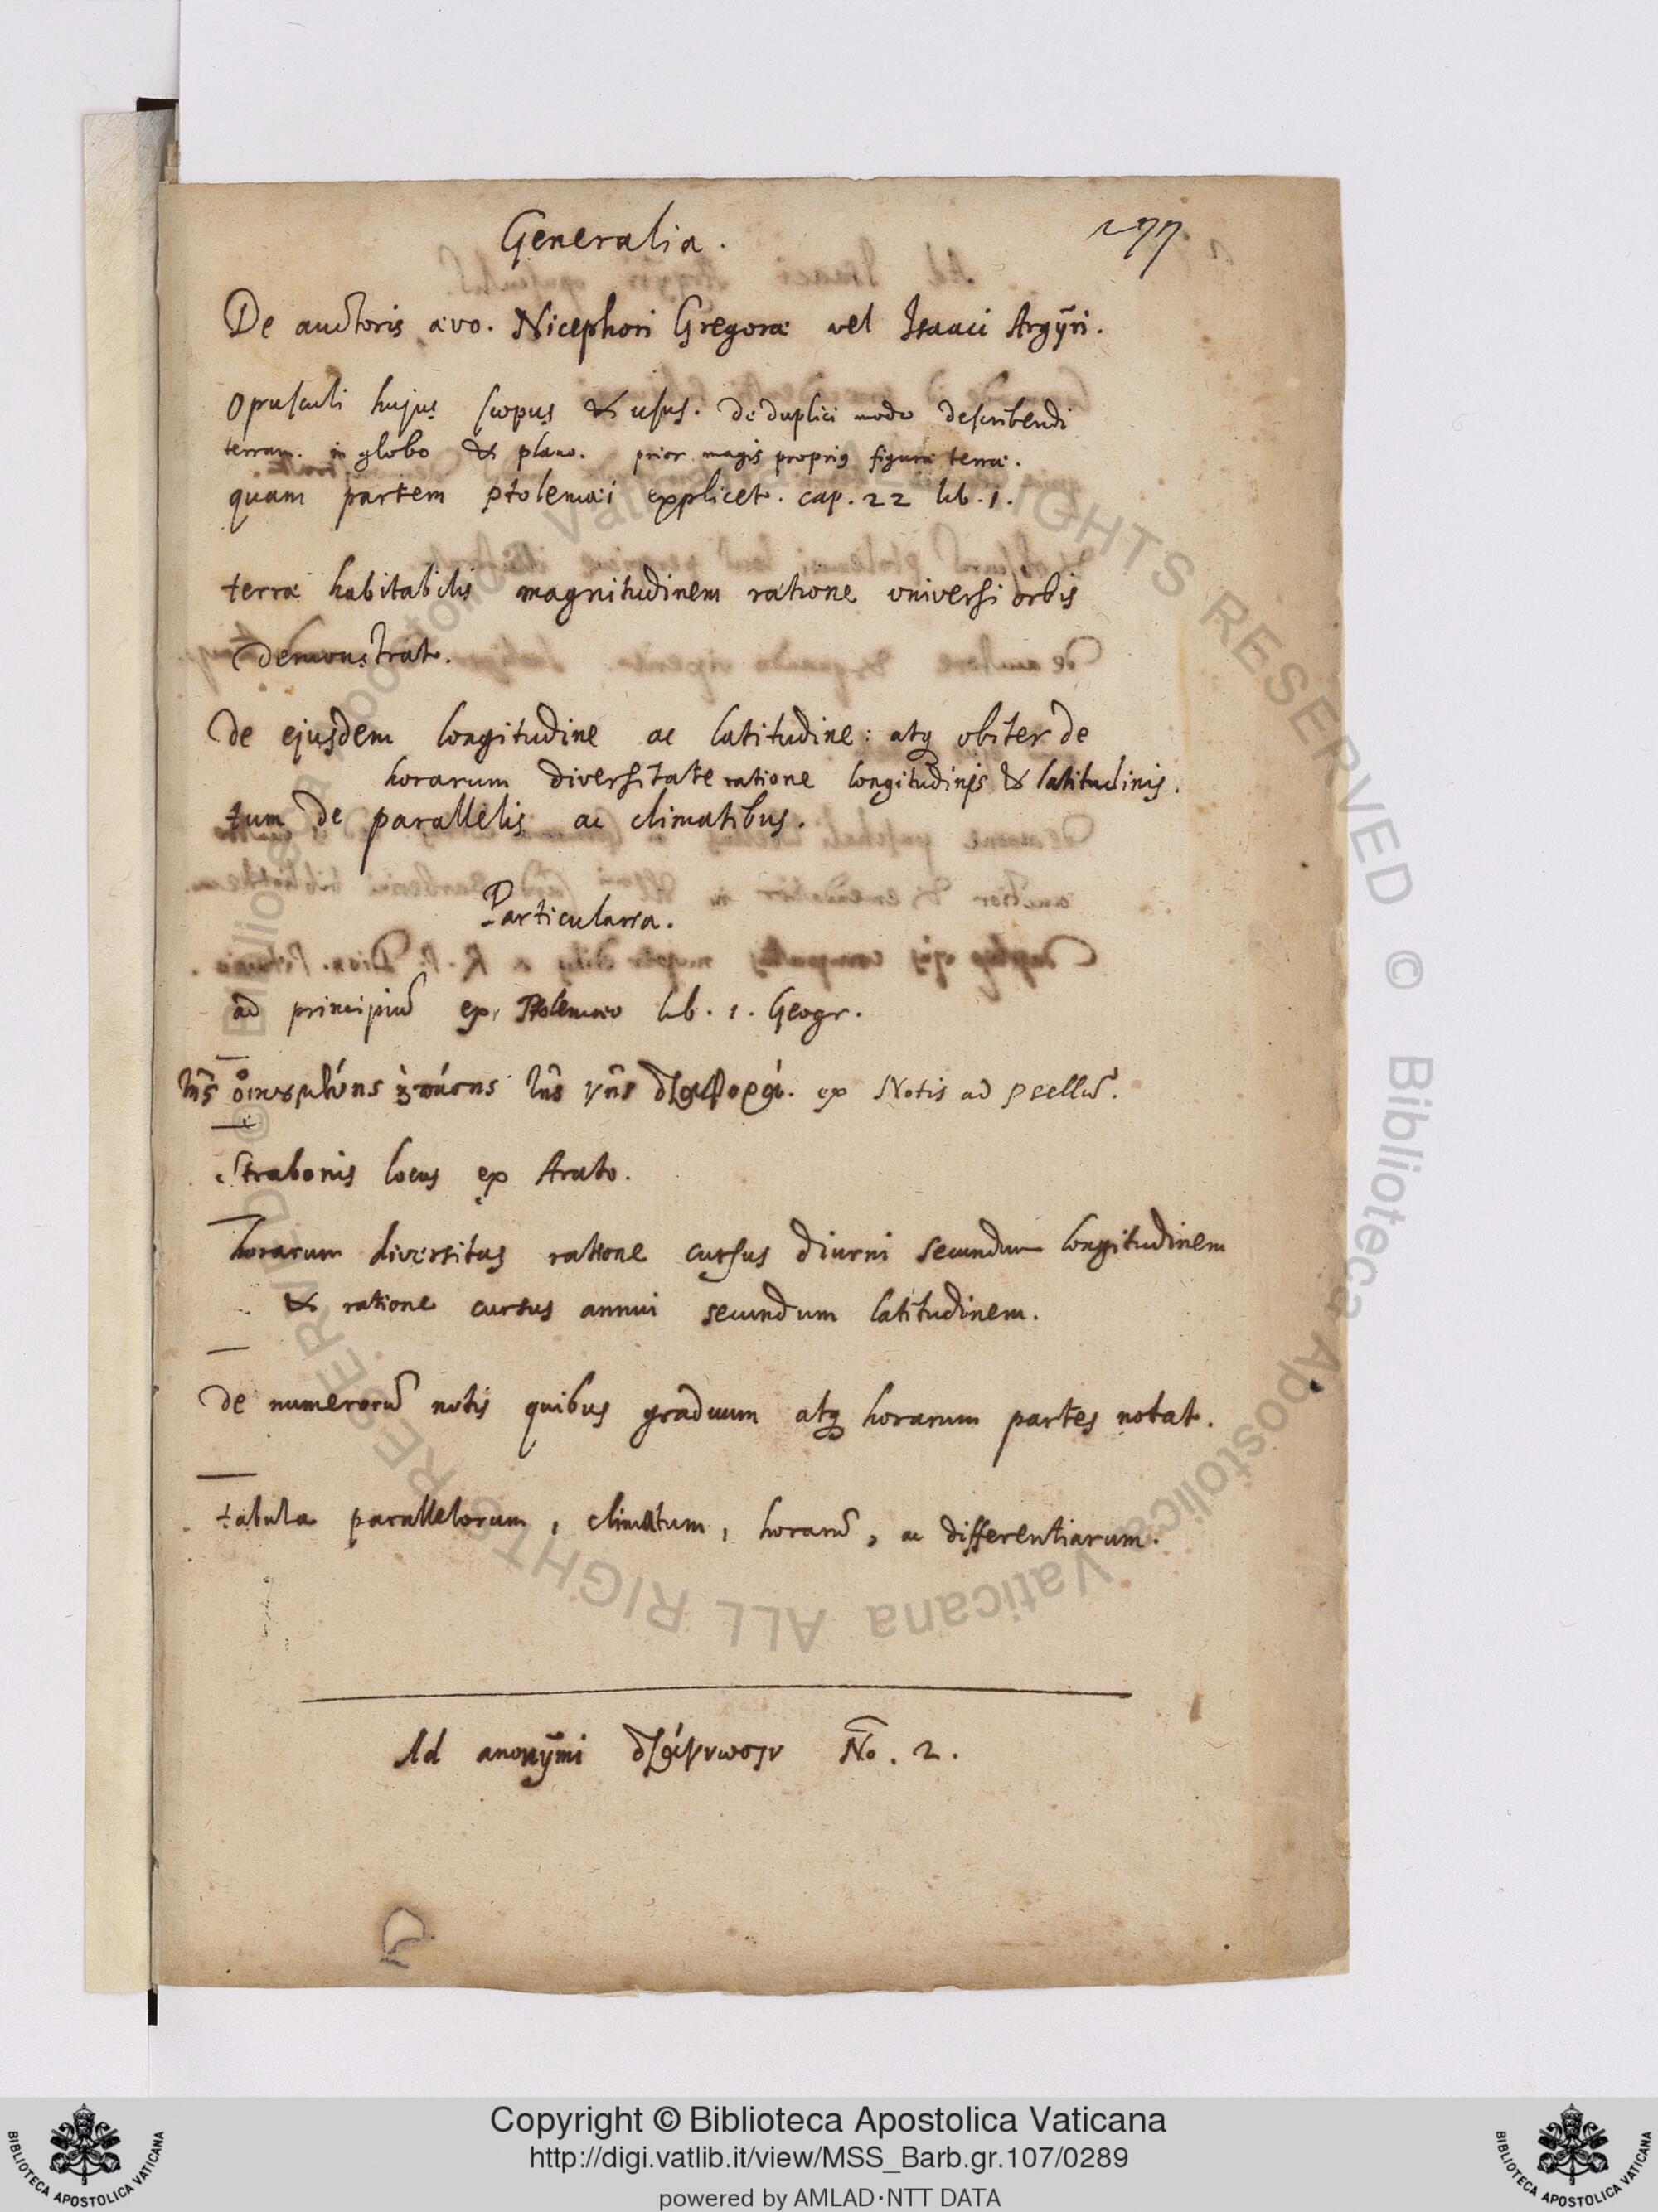 Generalia.
277
De auctoris ævo. Nicephori Gregoræ vel Isaaci Argÿri.
Opusculi hujus scopus & usus. de duplici modo describendi
terram. in globo & plano. prior magis proprius figuræ terræ.
quam partem Ptolemæi explicet. cap. 22 lib. 1.
terræ habitabilis magnitudinem ratione universi orbis
demonstrat.
De ejusdem longitudine ac latitudine: atq obiter de
horarum diversitate ratione longitudinis & latitudinis.
tum de parallelis ac climatibus.
Particularia.
ad principiū ex Ptolemæo lib. 1. Geogr.
τῆς οἰκουμένης ἢ πάσης τῆς γῆς διαφορά. ex Notis ad Psellū.
Strabonis locus ex Arato.
horarum diversitas ratione cursus diurni secundum longitudinem
& ratione cursus annui secundum latitudinem.
De numerorū notis quibus graduum atq horarum partes notat.
tabula parallelorum, climatum, horarū, ac differentiarum.
Ad anonÿmi διάγνωσιν No. 2.
Copyright © Biblioteca Apostolica Vaticana
http://digi.vatlib.it/view/MSS_Barb.gr.107/0289
powered by AMLAD·NTT DATA
BIBLIOTECA APOSTOLICA VATICANA
BIBLIOTECA APOSTOLICA VATICANA
© Biblioteca Apostolica Vaticana ALL RIGHTS RESERVED © Biblioteca Apostolica Vaticana ALL RIGHTS RESERVED